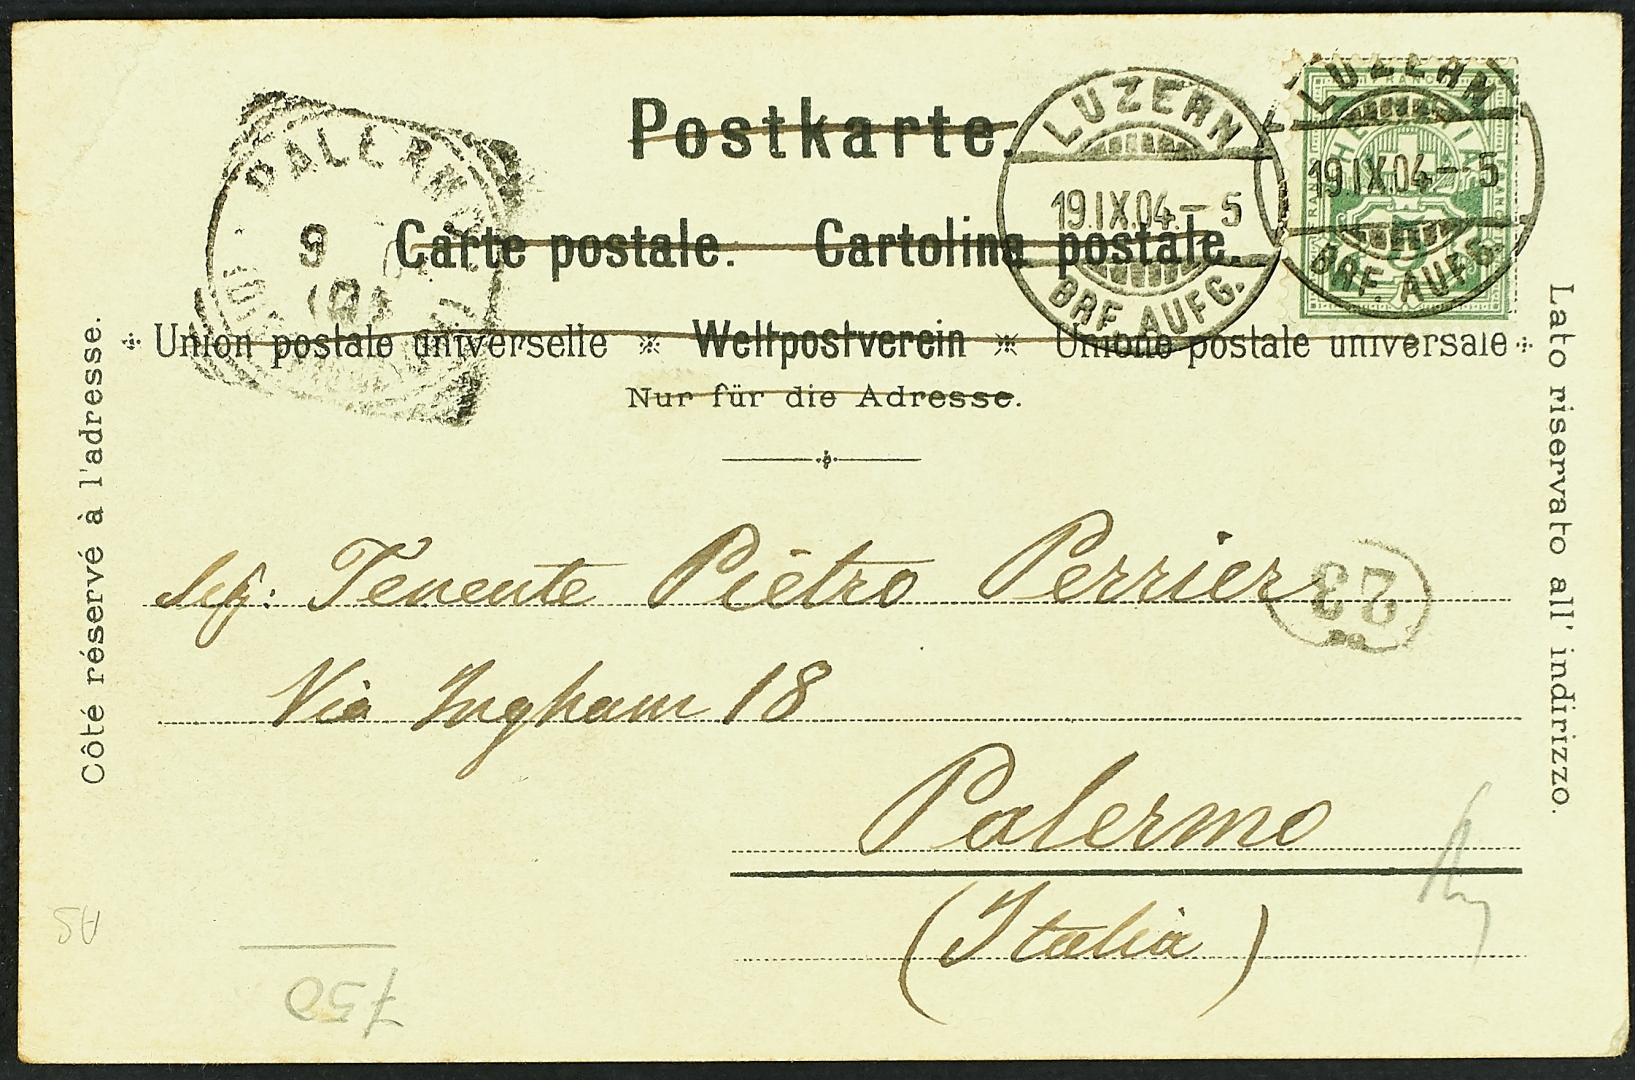 Postkarte.
Carte postale. Cartolina postale.
Union postale universelle ※ Weltpostverein ※ Unione postale universale
Nur für die Adresse.
Côté réservé à l'adresse.
Lato riservato all' indirizzo.
PALERMO
9
LUZERN
19.IX.04.-5
BRF. AUFG.
LUZERN
19.IX.04.-5
BRF. AUFG.
FRANCO
HELVETIA
5
Sig: Tenente Pietro Perrier
23
Via Ingham 18
Palermo
(Italia)
750
AS